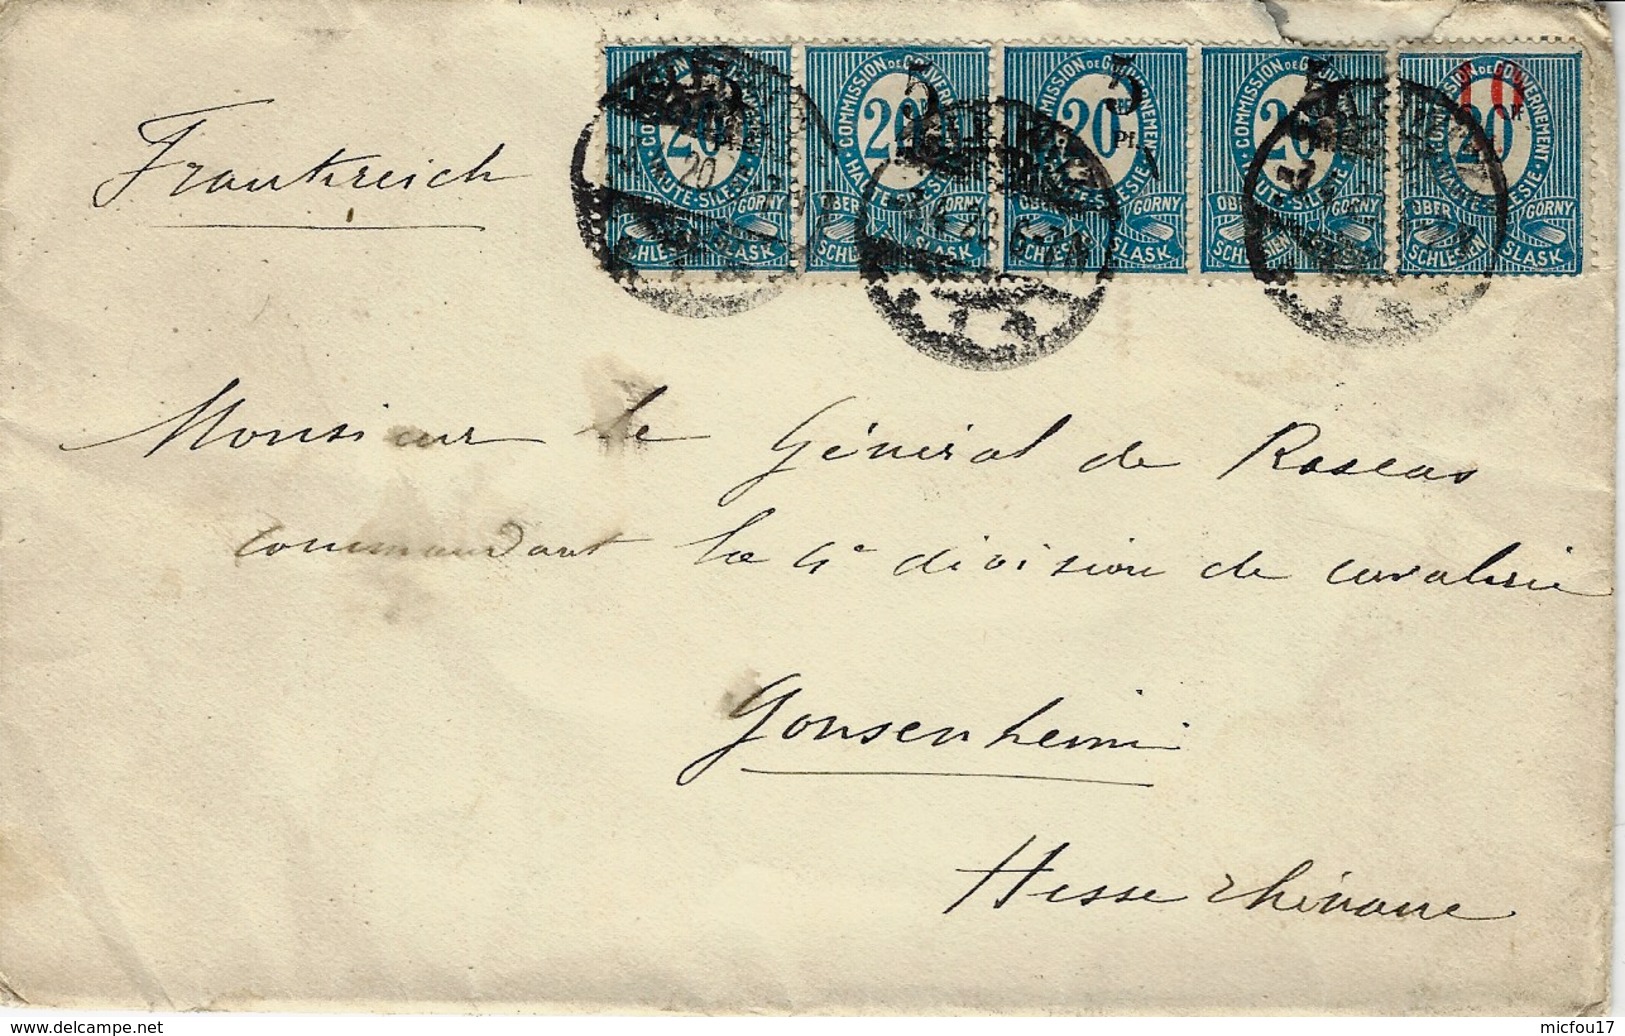 Frankreich
COMMISSION DE GOUVERNEMENT · HAUTE-SILESIE · 20 5 Pf. OBER SCHLESIEN GORNY SLASK
COMMISSION DE GOUVERNEMENT · HAUTE-SILESIE · 20 5 OBER SCHLESIEN GORNY SLASK
COMMISSION DE GOUVERNEMENT · HAUTE-SILESIE · 20 5 Pf. OBER SCHLESIEN GORNY SLASK
COMMISSION DE GOUVERNEMENT · HAUTE-SILESIE · 20 5 OBER SCHLESIEN GORNY SLASK
COMMISSION DE GOUVERNEMENT · HAUTE-SILESIE · 20 10 OBER SCHLESIEN GORNY SLASK
Monsieur le Général de Rascas
commandant la 4e division de cavalerie
Gonsenheim
Hesse rhénane
delcampe.net
micfou17